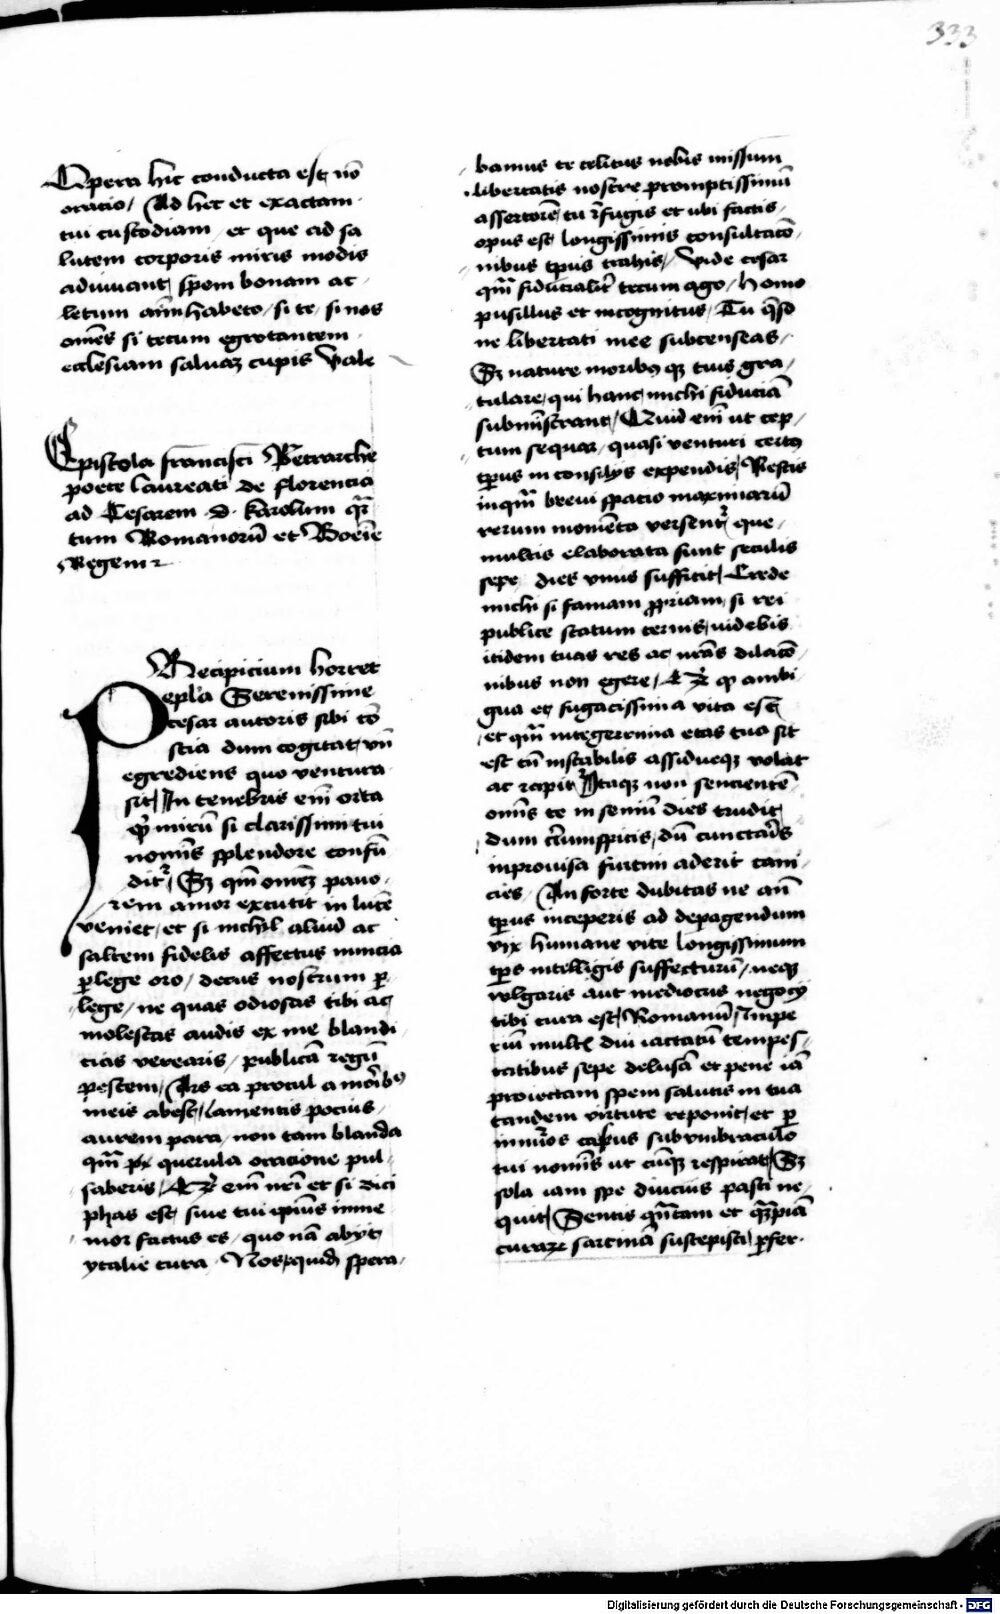 333
Opera hic conducta est nō
oratio / Ad hec et exactam
tui custodiam / et que ad sa
lutem corporis miris modis
adiuuant / spem bonam ac
letum aīm habeto / si te / si nos
om̄s si tecum egrotantem
ecclesiam saluaʒ cupis Vale
Epistola francisci Petrarche
poete laureati de florencia
ad Cesarem .d. karolum qr̄
tum Romanorū et Boeīe
Regem
Precipicium horret
epl̄a Serenissime
cesar autoris sibi cō
scia dum cogitat / vn̄
egrediens quo ventura
sit / In tenebris em̄ orta
qͥ mirū si clarissimi tui
nomīs splendore confū
ditr̄ / Sʒ qm̄ omēʒ pauo
rem amor excutit in lucē
veniet / et si nichil aliud ac
saltem fidelis affectus nuncia
ꝑlege oro / decus nostrum ꝑ
lege / ne quas odiosas tibi ac
molestas audis ex me blandi
cias verearis / publicā regū
pestem / Ars ea procul a morībꝰ
meis abest / lamentis pocius
aurem para / non tam blanda
qm̄ querula oracione pul
saberis / em̄ nrī et si dici
phas est / siue tui ipīus inme
mor factus es / quo nā abyt
ytalie cura / Nos / quid spera
bamus te celitus nobis missum
libertatis nostre promptissimū
assertorē / tu rēfugis et vbi factis
opus est longissimis consultacō
nibus tp̄us trahis / Vide cesar
qm̄ fiducialit̄ tecum ago / homo
pusillus et incognitus / Tu qūso
ne libertati mee subcenseas
Sʒ nature moribꝰ qʒ tuis gra
tulare / qui hanc michi fiduciā
submīstrant / Quid em̄ ut cep
tum sequar / quasi venturi certꝰ
tp̄us in consilijs expendis / Nescis
inqm̄ breui spatio maximarū
rerum momēta versentr̄ / que
multis elaborata sunt seculis
sepe dies vnus sufficit / Crede
michi si famam ꝓpriam / si rei
publice statum cernis / uidebis
itidem tuas res ac nrās dilacō
nibus non egere / qꝫ ambi
gua et fugacissima vita est
et qm̄ integerrima etas tua sit
est tn̄ instabilis assidueqʒ volat
ac rapitr̄ / Itaqʒ non sencientē
om̄s te in seniū dies trudit
dum circūspicis / dū cunctaris
inprouisa furtim aderit cani
cies / An forte dubitas ne ān̄
tp̄us inceperis ad depagendum
vix humane vite longissimum
tp̄s intelligis suffecturū / neqʒ
vulgaris aut mediocris negocij
tibi cura est / Romanū / Impe
riū multꝭ diu iactatū tempes
tatibus sepe delusā et pene iā
proiectam spem salutis in tua
tandem virtute reponit / et ꝑ
casus sub vmbraculo
tui nomīs ut cūqʒ respirat / Sʒ
sola iam spe diucius pasci ne
quit / Sentis qn̄tam et qʒpiā
curaʒ sarcinā suscepisti / ꝑfer
Digitalisierung gefördert durch die Deutsche Forschungsgemeinschaft - DFG